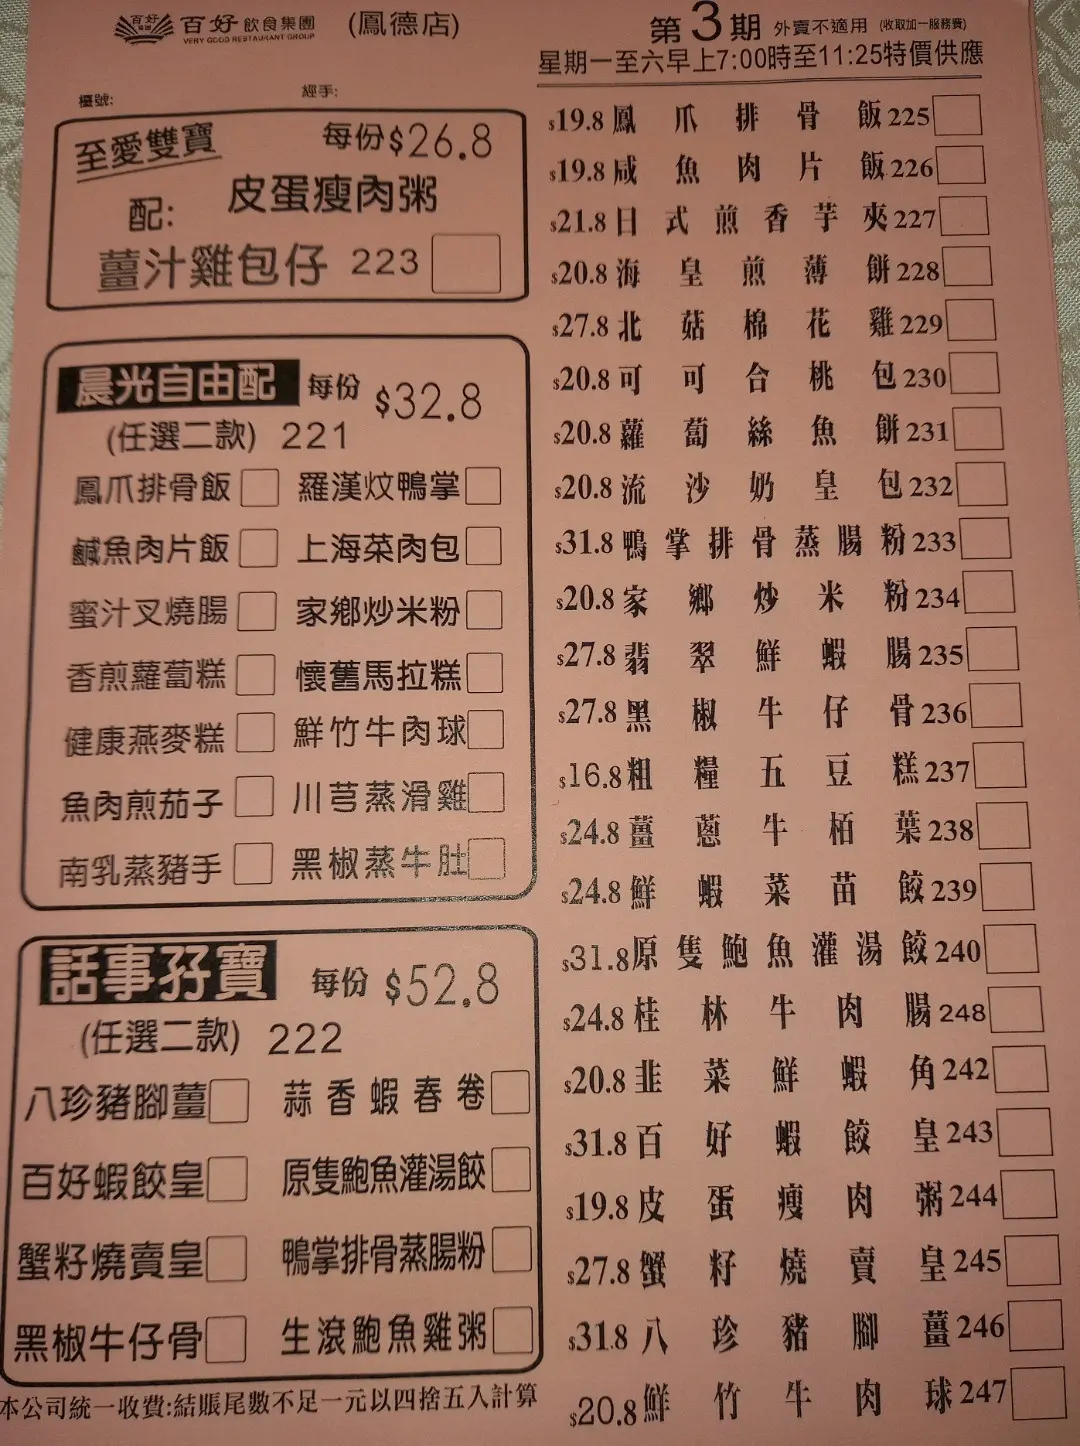 百好 飲食集團 (鳳德店)
VERY GOOD RESTAURANT GROUP
第3期 外賣不適用 (收取加一服務費)
星期一至六早上7:00時至11:25特價供應
檯號: 經手:
至愛雙寶 每份$26.8
配: 皮蛋瘦肉粥
薑汁雞包仔 223
晨光自由配 每份 $32.8
(任選二款) 221
鳳爪排骨飯 羅漢炆鴨掌
鹹魚肉片飯 上海菜肉包
蜜汁叉燒腸 家鄉炒米粉
香煎蘿蔔糕 懷舊馬拉糕
健康燕麥糕 鮮竹牛肉球
魚肉煎茄子 川芎蒸滑雞
南乳蒸豬手 黑椒蒸牛肚
話事孖寶 每份 $52.8
(任選二款) 222
八珍豬腳薑 蒜香蝦春卷
百好蝦餃皇 原隻鮑魚灌湯餃
蟹籽燒賣皇 鴨掌排骨蒸腸粉
黑椒牛仔骨 生滾鮑魚雞粥
本公司統一收費:結賬尾數不足一元以四捨五入計算
$19.8 鳳爪排骨飯 225
$19.8 咸魚肉片飯 226
$21.8 日式煎香芋夾 227
$20.8 海皇煎薄餅 228
$27.8 北菇棉花雞 229
$20.8 可可合桃包 230
$20.8 蘿蔔絲魚餅 231
$20.8 流沙奶皇包 232
$31.8 鴨掌排骨蒸腸粉 233
$20.8 家鄉炒米粉 234
$27.8 翡翠鮮蝦腸 235
$27.8 黑椒牛仔骨 236
$16.8 粗糧五豆糕 237
$24.8 薑蔥牛栢葉 238
$24.8 鮮蝦菜苗餃 239
$31.8 原隻鮑魚灌湯餃 240
$24.8 桂林牛肉腸 248
$20.8 韭菜鮮蝦角 242
$31.8 百好蝦餃皇 243
$19.8 皮蛋瘦肉粥 244
$27.8 蟹籽燒賣皇 245
$31.8 八珍豬腳薑 246
$20.8 鮮竹牛肉球 247